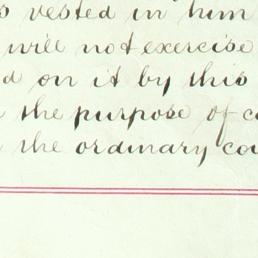 vested in him
will not exercise
d on it by this
the purpose of c
the ordinary cou